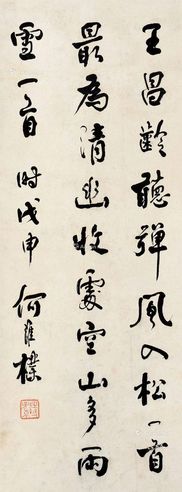 王昌齡聽彈風入松一首
最為清幽收處空山多雨
雪一首時戊申何維樸